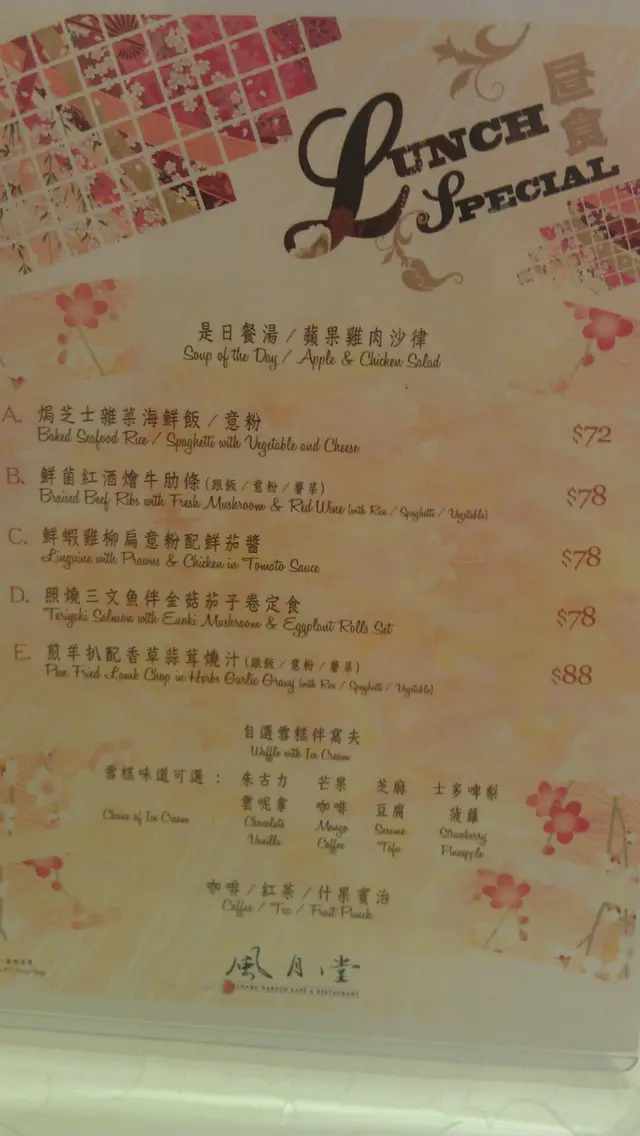 LUNCH
昼食
SPECIAL
是日餐湯 / 蘋果雞肉沙律
Soup of the Day / Apple & Chicken Salad
A. 焗芝士雜菜海鮮飯 / 意粉 $72
Baked Seafood Rice / Spaghetti with Vegetable and Cheese
B. 鮮菌紅酒燴牛肋條 (跟飯 / 意粉 / 薯菜) $78
Braised Beef Ribs with Fresh Mushroom & Red Wine (with Rice / Spaghetti / Vegetable)
C. 鮮蝦雞柳扁意粉配鮮茄醬 $78
Linguine with Prawns & Chicken in Tomato Sauce
D. 照燒三文魚伴金菇茄子卷定食 $78
Teriyaki Salmon with Enoki Mushroom & Eggplant Rolls Set
E. 煎羊扒配香草蒜茸燒汁 (跟飯 / 意粉 / 薯菜) $88
Pan Fried Lamb Chop in Herbs Garlic Gravy (with Rice / Spaghetti / Vegetable)
自選雪糕伴窩夫
Waffle with Ice Cream
雪糕味道可選 : 朱古力 芒果 芝麻 士多啤梨
雲呢拿 咖啡 豆腐 菠蘿
Choice of Ice Cream Chocolate Mango Sesame Strawberry
Vanilla Coffee Tofu Pineapple
咖啡 / 紅茶 / 什果賓治
Coffee / Tea / Fruit Punch
風月堂
CAFE & RESTAURANT